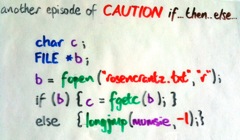 another episode of CAUTION if...then..else...
char c ;
FILE *b;
b = fopen("rosencrantz.txt","r");
if (b) { c = fgetc(b); }
else { longjmp(mumsie,-1);}